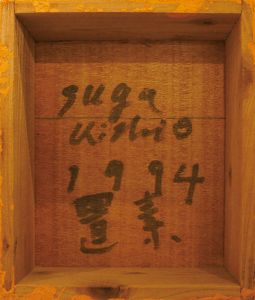 suga
Kishio
1994
置素